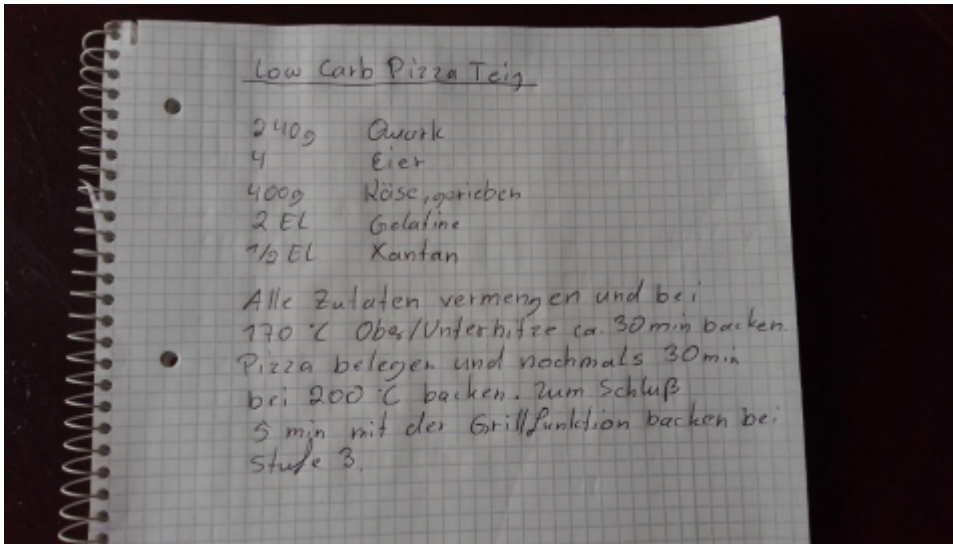 Low Carb Pizza Teig
240g Quark
4 Eier
400g Käse, gerieben
2 EL Gelatine
1/2 EL Xantan
Alle Zutaten vermengen und bei
170 °C Ober/Unterhitze ca. 30min backen.
Pizza belegen und nochmals 30min
bei 200 °C backen. Zum Schluß
5 min mit der Grillfunktion backen bei
Stufe 3.